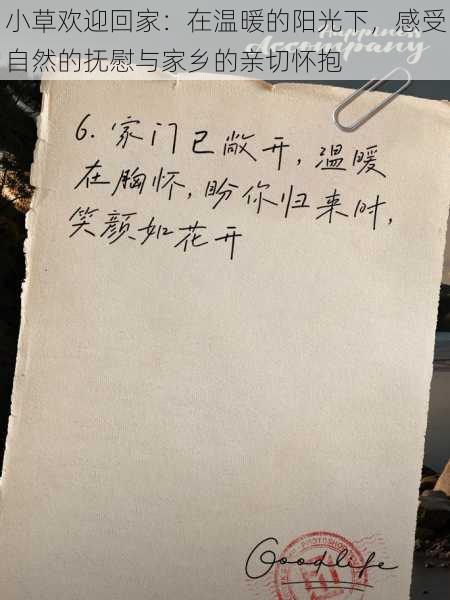 小草欢迎回家：在温暖的阳光下，感受
自然的抚慰与家乡的亲切怀抱
Happiness
Accompany
6. 家门已敞开，温暖
在胸怀，盼你归来时，
笑颜如花开
Goodlife